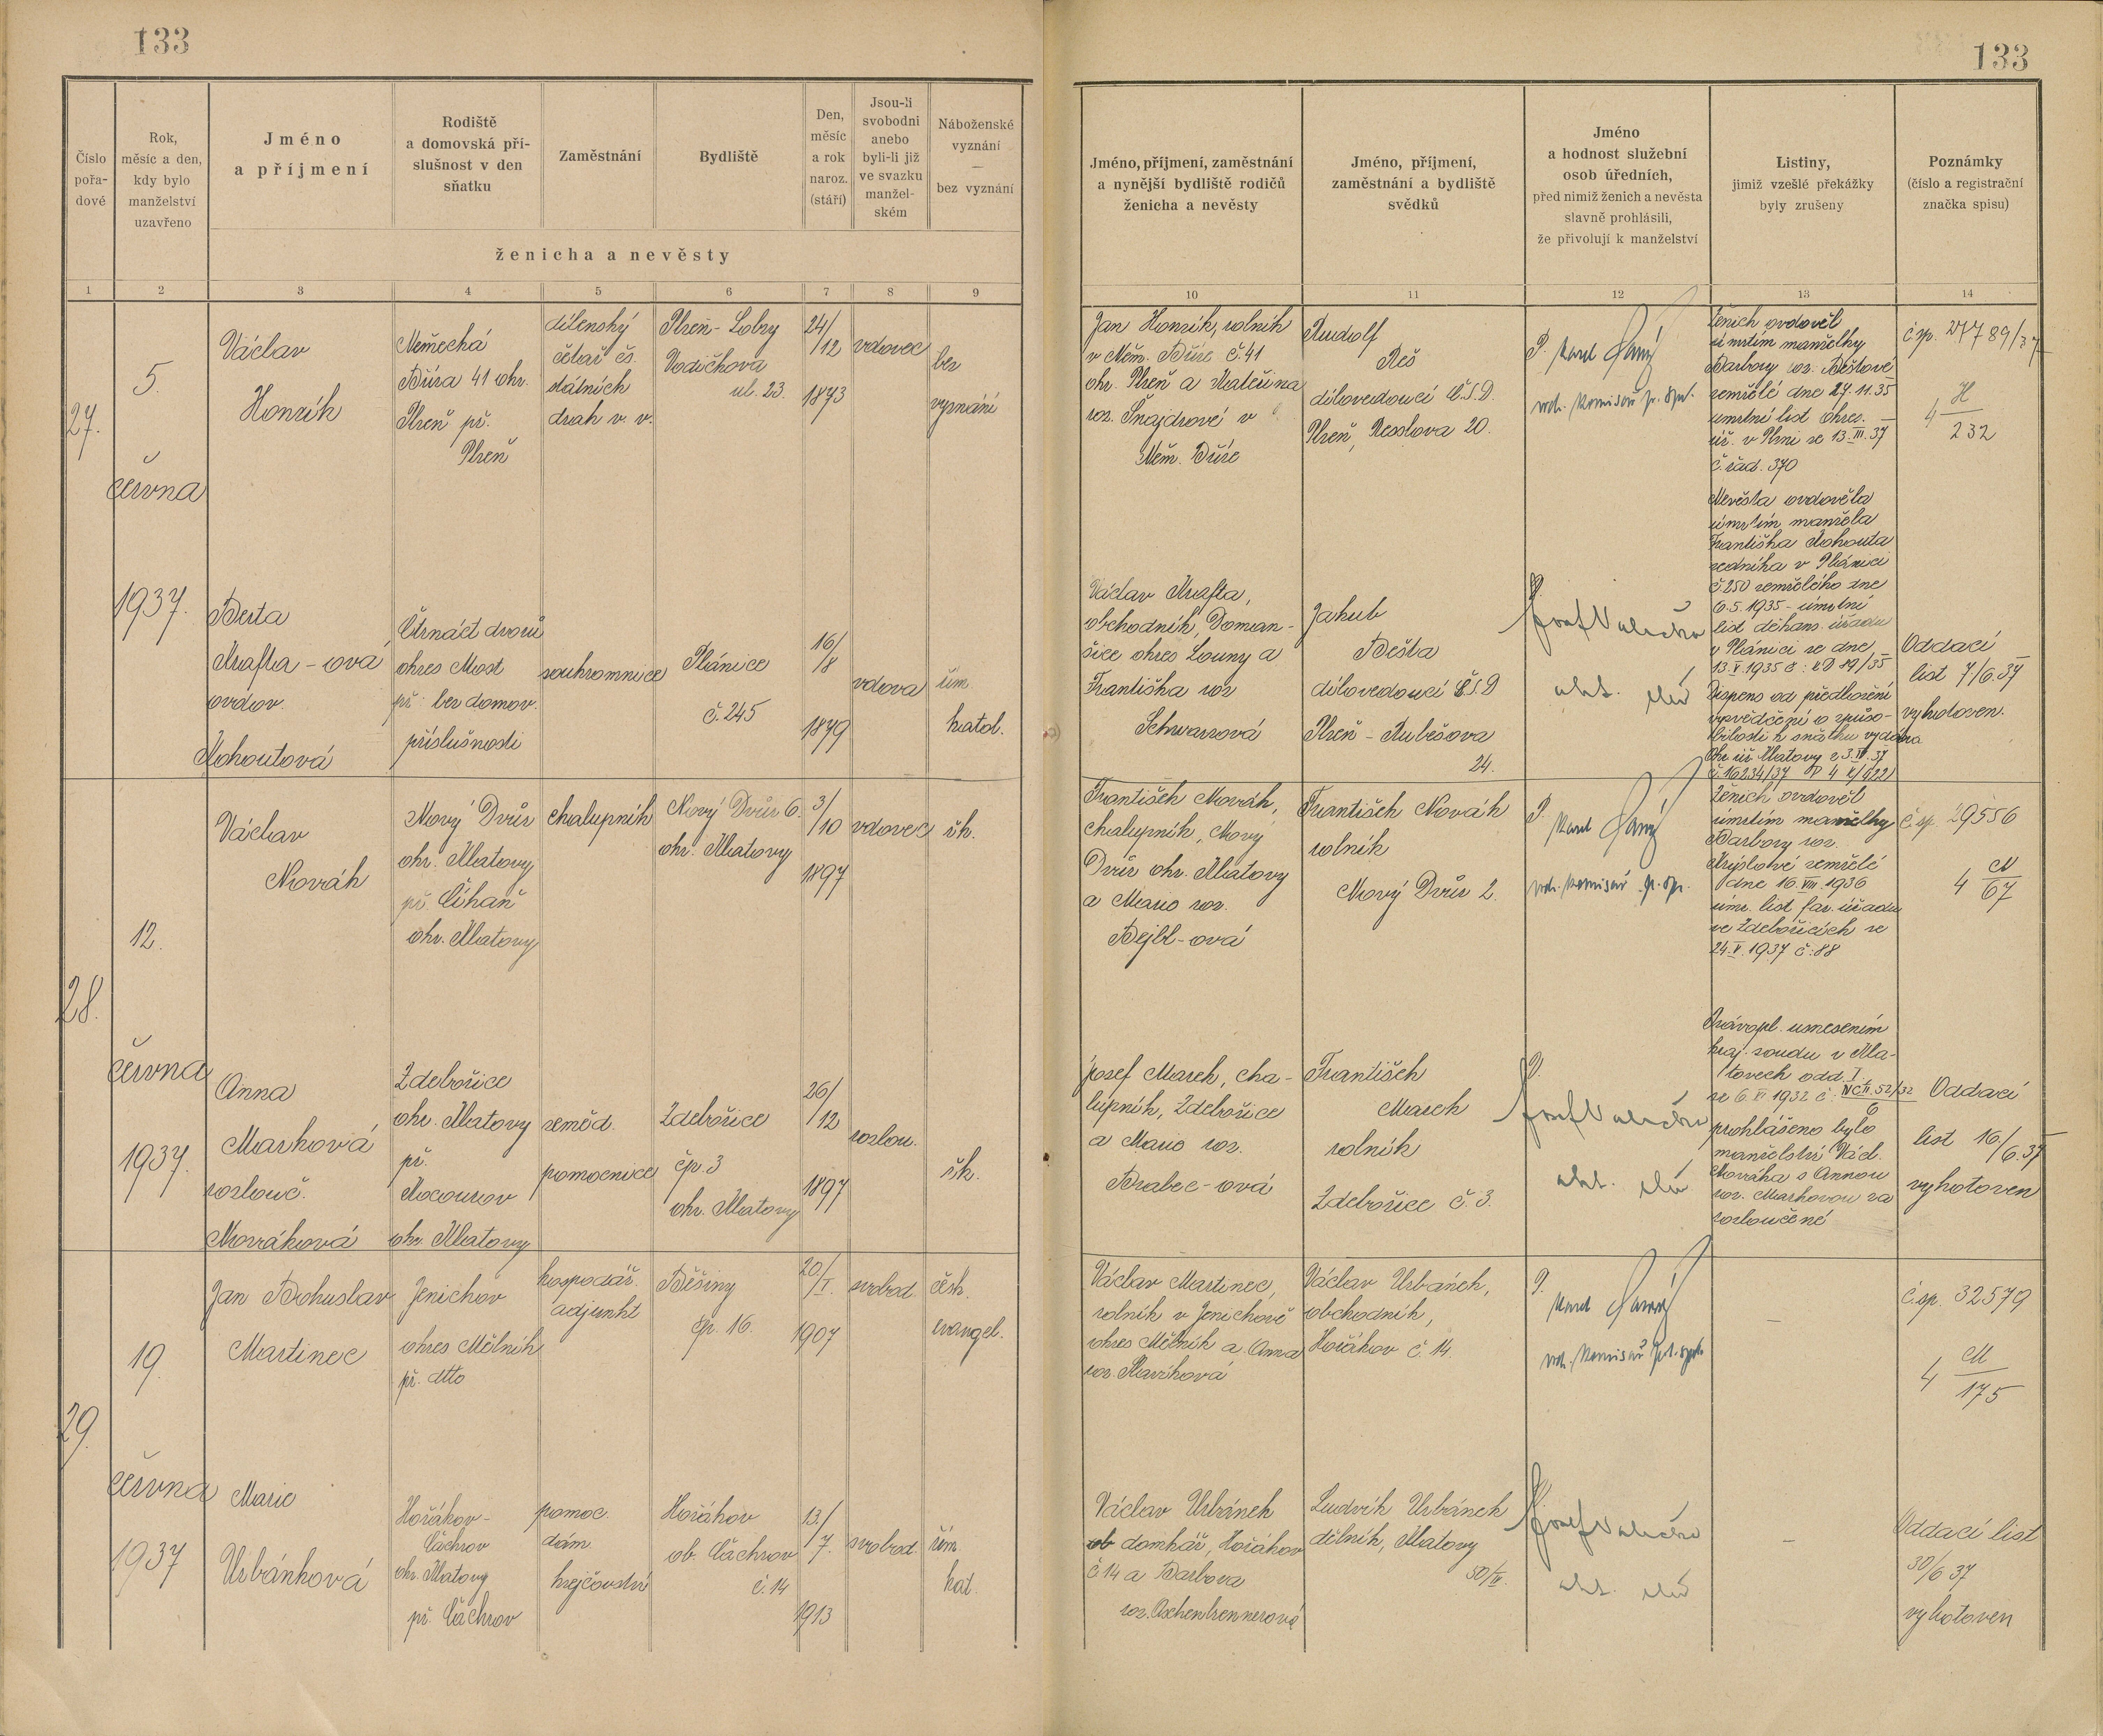 133
133
Číslo
pořa-
dové
Rok,
měsíc a den,
kdy bylo
manželství
uzavřeno
Jméno
a příjmení
Rodiště
a domovská pří-
slušnost v den
sňatku
Zaměstnání
Bydliště
Den,
měsíc
a rok
naroz.
(stáří)
Jsou-li
svobodni
anebo
byli-li již
ve svazku
manžel-
ském
Náboženské
vyznání
—
bez vyznání
ženicha a nevěsty
Jméno, příjmení, zaměstnání
a nynější bydliště rodičů
ženicha a nevěsty
Jméno, příjmení,
zaměstnání a bydliště
svědků
Jméno
a hodnost služební
osob úředních,
před nimiž ženich a nevěsta
slavně prohlásili,
že přivolují k manželství
Listiny,
jimiž vzešlé překážky
byly zrušeny
Poznámky
(číslo a registrační
značka spisu)
1 2 3 4 5 6 7 8 9
10 11 12 13 14
27.
5.
června
1937.
Václav
Honzík
Německá
Bříza 41 okr.
Plzeň př.
Plzeň
dílenský
čětař čs.
státních
drah v. v.
Plzeň - Lobzy
Vodičkova
ul. 23.
24/
/12
1873
vdovec
bez
vyznání
Jan Honzík, rolník
v Něm. Bříze č. 41
okr. Plzeň a Kateřina
roz. Šnajdrové v
Něm. Bříze
Rudolf
Reš
dílovedoucí Č.S.D.
Plzeň, Resslova 20.
P. Karel
vrch. komisař p. spr.
Ženich ovdověl
úmrtím manželky
Barbory roz. Beštové
zemřelé dne 27.11.35
úmrtní list okres.
úř. v Plzni ze 13.III.37
č. řad. 370
č. sp. 27789/37
4 H/232
Berta
Krafta - ová
ovdov.
Kohoutová
Čtrnáct dvorů
okres Most
př. bez domov.
příslušnosti
soukromnice
Plánice
č. 245
16/
/8
1879
vdova
řím.
katol.
Václav Krafta,
obchodník, Doman-
šice okres Louny a
Františka roz
Schwarzová
Jakub
Bešta
dílovedoucí ČSD
Plzeň - Rubešova
24.
Nevěsta ovdověla
úmrtím manžela
Františka Kohouta
zedníka v Plánici
č. 250 zemřelého dne
6.5.1935 - úmrtní
list děkans. úřadu
v Plánici ze dne
13.V.1935 č:
Dispens od předložení
vysvědčení o způso-
bilosti k sňatku vydána
okr. úř. Klatovy z 3.VI.37
č. 16234/37
Oddací
list 7/6.37
vyhotoven.
28.
12.
června
1937.
Václav
Novák
Nový Dvůr
okr. Klatovy
př. Číhaň
okr. Klatovy
chalupník
Nový Dvůr 6.
okr. Klatovy
3/
/10
1897
vdovec
řk.
František Novák,
chalupník, Nový
Dvůr okr. Klatovy
a Marie roz.
Bejbl - ová
František Novák
rolník
Nový Dvůr 2.
P. Karel
vrch. komisař p. spr.
Ženich ovdověl
úmrtím manželky
Barbory roz.
zemřelé
dne 16.VIII.1936
úmr. list far. úřadu
ve Zdebořicích ze
24.V.1937 č: 88
č. sp. 29556
4 N/67
Anna
Marková
rozlouč.
Nováková
Zdebořice
okr. Klatovy
př.
Kocourov
okr. Klatovy
zeměd.
pomocnice
Zdebořice
čp. 3
okr. Klatovy
26/
/12
1897
rozlou.
řk.
Josef Marek, cha-
lupník, Zdebořice
a Marie roz.
Brabec - ová
František
Marek
rolník
Zdebořice č. 3.
Právopl. usnesením
kraj. soudu v Kla-
tovech odd. I.
ze 6.VI 1932 č. Nc II. 52/32
6
prohlášeno bylo
manželství Václ.
Nováka s Annou
roz. Markovou za
rozloučené
Oddací
list 16./6.37
vyhotoven
29.
19.
června
1937
Jan Bohuslav
Martinec
Jenichov
okres Mělník
př. dtto
hospodář.
adjunkt
Běšiny
čp. 16.
20/
/I.
1907
svobod.
česk.
evangel.
Václav Martinec,
rolník v Jenichově
okres Mělník a Anna
roz.
Václav Urbánek,
obchodník,
Hořákov č. 14.
P. Karel
vrch. komisař pol. spr.
–
č. sp. 32579
4 M/175
Marie
Urbánková
Hořákov -
Čachrov
okr. Klatovy
př. Čachrov
pomoc.
dám.
krejčovství
Hořákov
ob. Čachrov
č. 14
13./
7.
1913
svobod.
řím.
kat.
Václav Urbánek
ob domkář, Hořákov
č 14 a Barbora
roz. Aschenbrennerová
Ludvík Urbánek
dělník, Klatovy
50/IV.
–
Oddací list
30/6 37
vyhotoven